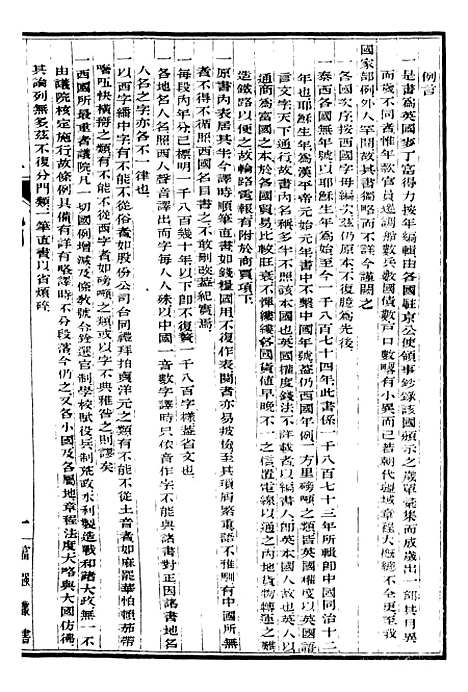 例言
一是書爲英國事丁富得力按年編輯由各國駐京公使領事鈔錄該國頒示之歲單彙集而成歲出一部其月異
而歲不同者惟年款官員遞調船數兵數國債數戶口數略有小異而已若朝代疆域章程大概總不同上年此
國家部例外人罕聞故其書獨略而不詳今謹闕之
一各國次序按西國字母編次茲仍原本不復臆爲先後
一泰西各國無年號以耶穌生年爲始至今一千八百七十四年此書係一千八百七十三年所輯即中國同治十二
年也耶穌生年爲漢平帝元始元年書中不繫中國年號蓋仍西國年例一方里磅噸之類皆英國權度以英國語
言文字天下通行故書內名稱多半不照該本國也英國權度錢法不詳載者以編書人即英本國也一英以
通商爲富國之本於各國貿易比較旺衰不憚縷縷各國貨値早晚不一之信置電線以通之內地貨物轉運之難
造鐵路以便之故輪路電報有附於商賈項下
一原書內表居其半今譯時順筆直書如錢糧國用不復作表閱者亦易披檢至其瑣屑繁重語不雅馴有中國所無
者不得不循照西國名目書之不敢刪改蓋紀實焉
一每段內年分已標明一千八百幾十年以下即不復贅一千八百字樣蓋省文也
一各地名人名照西人聲音譯出而字每人人殊以中國一音數字譯時只依音作字不能與諸書對正因諸書地名
人名之字亦各不一律也
一以西字繙中字有不能不從俗者如股份公司合同禮拜拍賣洋元之類有不能不從土音者如麻罷華怕頓茄帶
噹㕶快橫搿之類有不能不從西字者如磅噸之類或以字不典雅咎之則謬矣
一西國所最重者議院凡一切國例增减及條教號令銓選官制學校賦役兵制荒政水利製造戰和諸大政無一不
由議院核定施行故條例具備有詳有略譯時不分段落今仍之又各小國及各屬地章程法度大略與大國彷彿
其論列無多茲不復分門類一筆直書以省煩碎
一
富強叢書